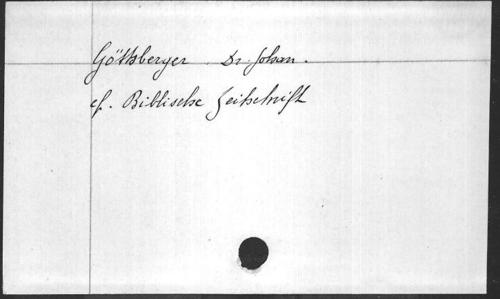 Göttsberger Dr. Johan.
cf. Biblische Zeitschrift